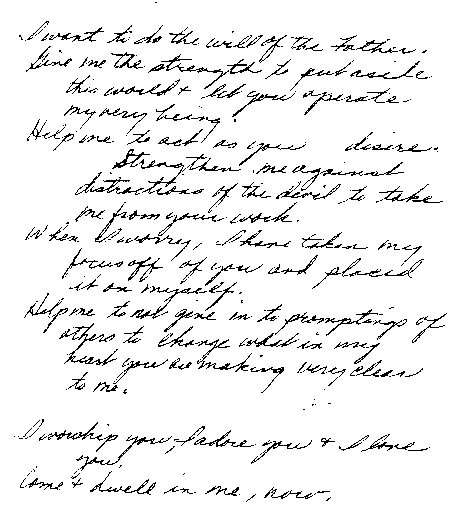 I want to do the will of the Father.
Give me the strength to put aside
this world + let you operate
my very being.
Help me to act as you desire.
Strengthen me against
distractions of the devil to take
me from your work.
When I worry, I have taken my
focus off of you and placed
it on myself.
Help me to not give in to promptings of
others to change what in my
heart you are making very clear
to me.
I worship you, I adore you + I love
you.
Come + dwell in me, now.